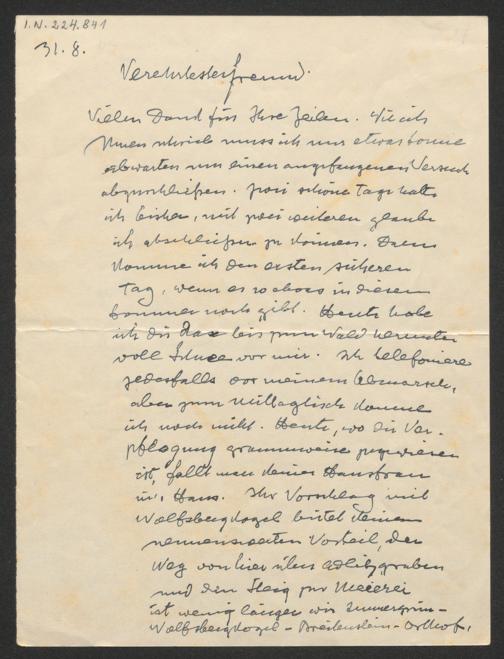 I.N. 224.841
31. 8.
Verehrtester Freund.
Vielen Dank für Ihre Zeilen. Wie ich
Ihnen schrieb muss ich nur etwas Sonne
abwarten um einen angefangenen Versuch
abzuschließen. Zwei schöne Tage hatte
ich bisher, mit zwei weiteren glaube
ich abschließen zu können. Dann
komme ich den ersten sicheren
Tag, wenn es so etwas in diesem
Sommer noch gibt. Heute habe
ich die Rax bis zum Wald herunter
voll Schnee vor mir. Ich telefoniere
jedesfalls vor meinem Abmarsch,
aber zum Mittagtisch komme
ich noch nicht. Heute, wo die Ver-
pflegung grammweise zugewiesen
ist, fällt man keiner Hausfrau
in's Haus. Ihr Vorschlag mit
Wolfsbergkogel bietet keinen
nennenswerten Vorteil, der
Weg von hier übers Adlitzgraben
und den Steig zur Meierei
ist wenig länger wie Semmering-
Wolfsbergkogel - Breitenstein - Orthof.